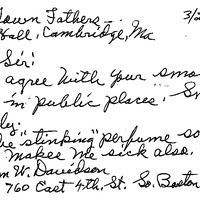 Town Fathers — 3/2
Hall, Cambridge, Ma
Sir:
agree with your smo
in public places. Sm
ly.
he "stinking" perfume so
makes me sick also.
m W. Davidson
760 East 4th. St. So. Boston